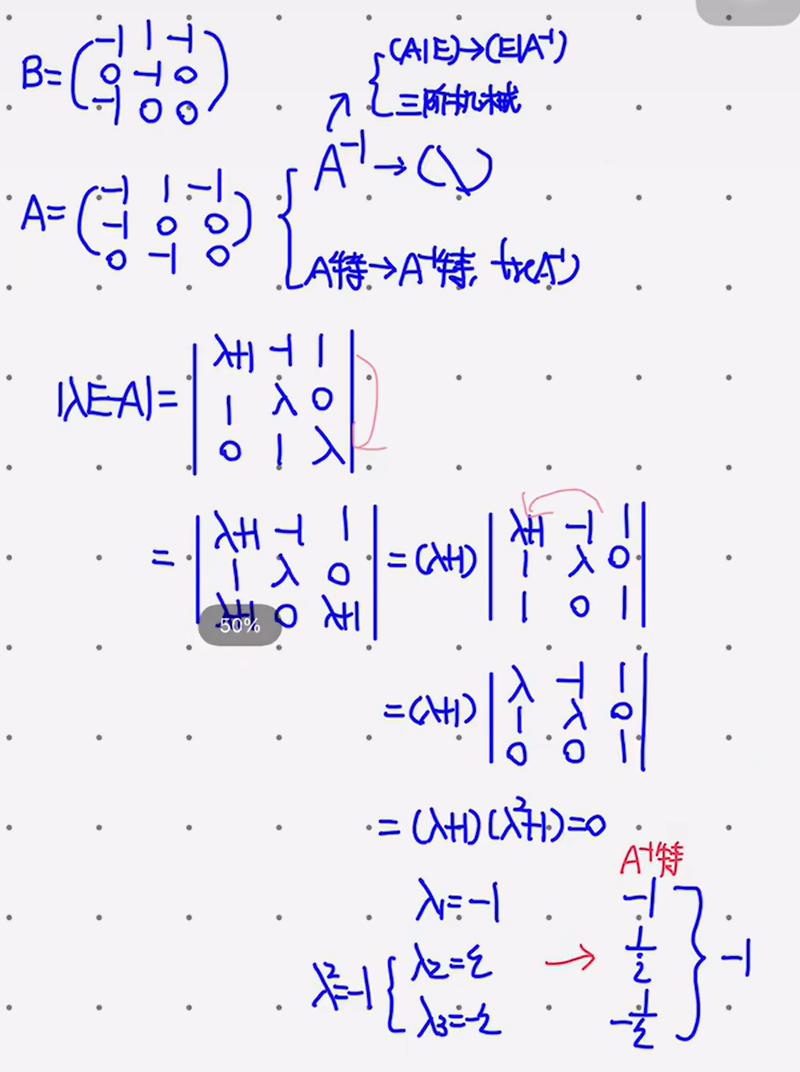 B=(-1 1 -1
0 -1 0
-1 0 0)
{(A|E)→(E|A⁻¹)
三阶机械
A=(-1 1 -1
-1 0 0
0 -1 0)
{A⁻¹→(\)
A特→A⁻¹特, tr(A⁻¹)
|λE-A|=|λ+1 -1 1
1 λ 0
0 1 λ|
=|λ+1 -1 1
1 λ 0
λ+1 0 λ+1|
50%
=(λ+1)|λ+1 -1 1
1 λ 0
1 0 1|
=(λ+1)|λ -1 1
1 λ 0
0 0 1|
=(λ+1)(λ²+1)=0
A⁻¹特
λ₁=-1 -1
λ²=-1{λ₂=i → 1/i }-1
λ₃=-i -1/i